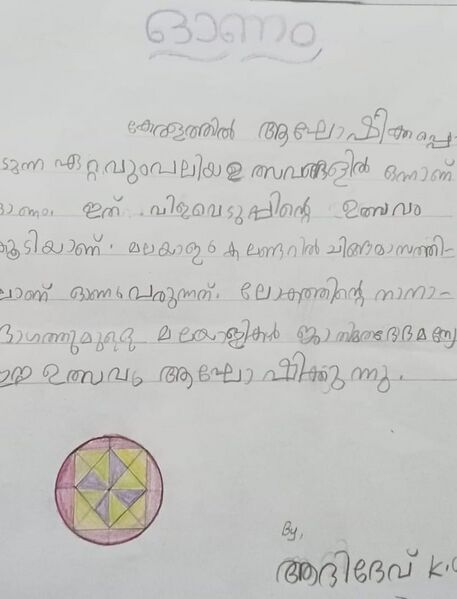 ഓണം
കേരളത്തിൽ ആഘോഷിക്കപ്പെ-
ടുന്ന ഏറ്റവുംവലിയ ഉത്സവങ്ങളിൽ ഒന്നാണ്
ഓണം. ഇത് വിളവെടുപ്പിന്റെ ഉത്സവം
കൂടിയാണ്. മലയാളം കലണ്ടറിൽ ചിങ്ങമാസത്തി-
ലാണ് ഓണംവരുന്നത്. ലോകത്തിന്റെ നാനാ-
ഭാഗത്തുമുള്ള മലയാളികൾ ജാതിമതഭേദമന്യേ
ഈ ഉത്സവം ആഘോഷിക്കുന്നു.
By,
ആദിദേവ് K.